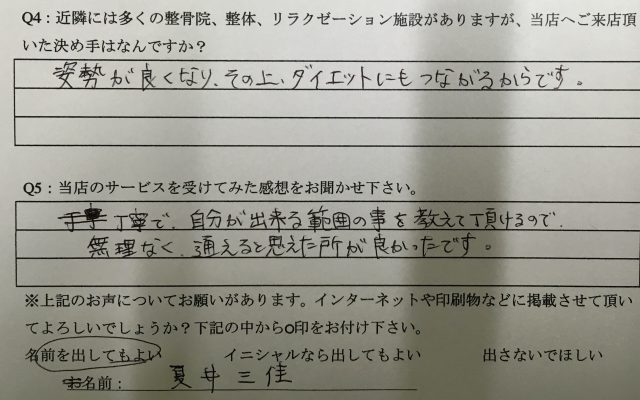 Q4：近隣には多くの整骨院、整体、リラクゼーション施設がありますが、当店へご来店頂
いた決め手はなんですか？
姿勢が良くなり、その上、ダイエットにもつながるからです。
Q5：当店のサービスを受けてみた感想をお聞かせ下さい。
丁寧で、自分が出来る範囲の事を教えて頂けるので、
無理なく、通えると思えた所が良かったです。
※上記のお声についてお願いがあります。インターネットや印刷物などに掲載させて頂い
てよろしいでしょうか？下記の中から○印をお付け下さい。
名前を出してもよい　イニシャルなら出してもよい　出さないでほしい
お名前：夏井三佳